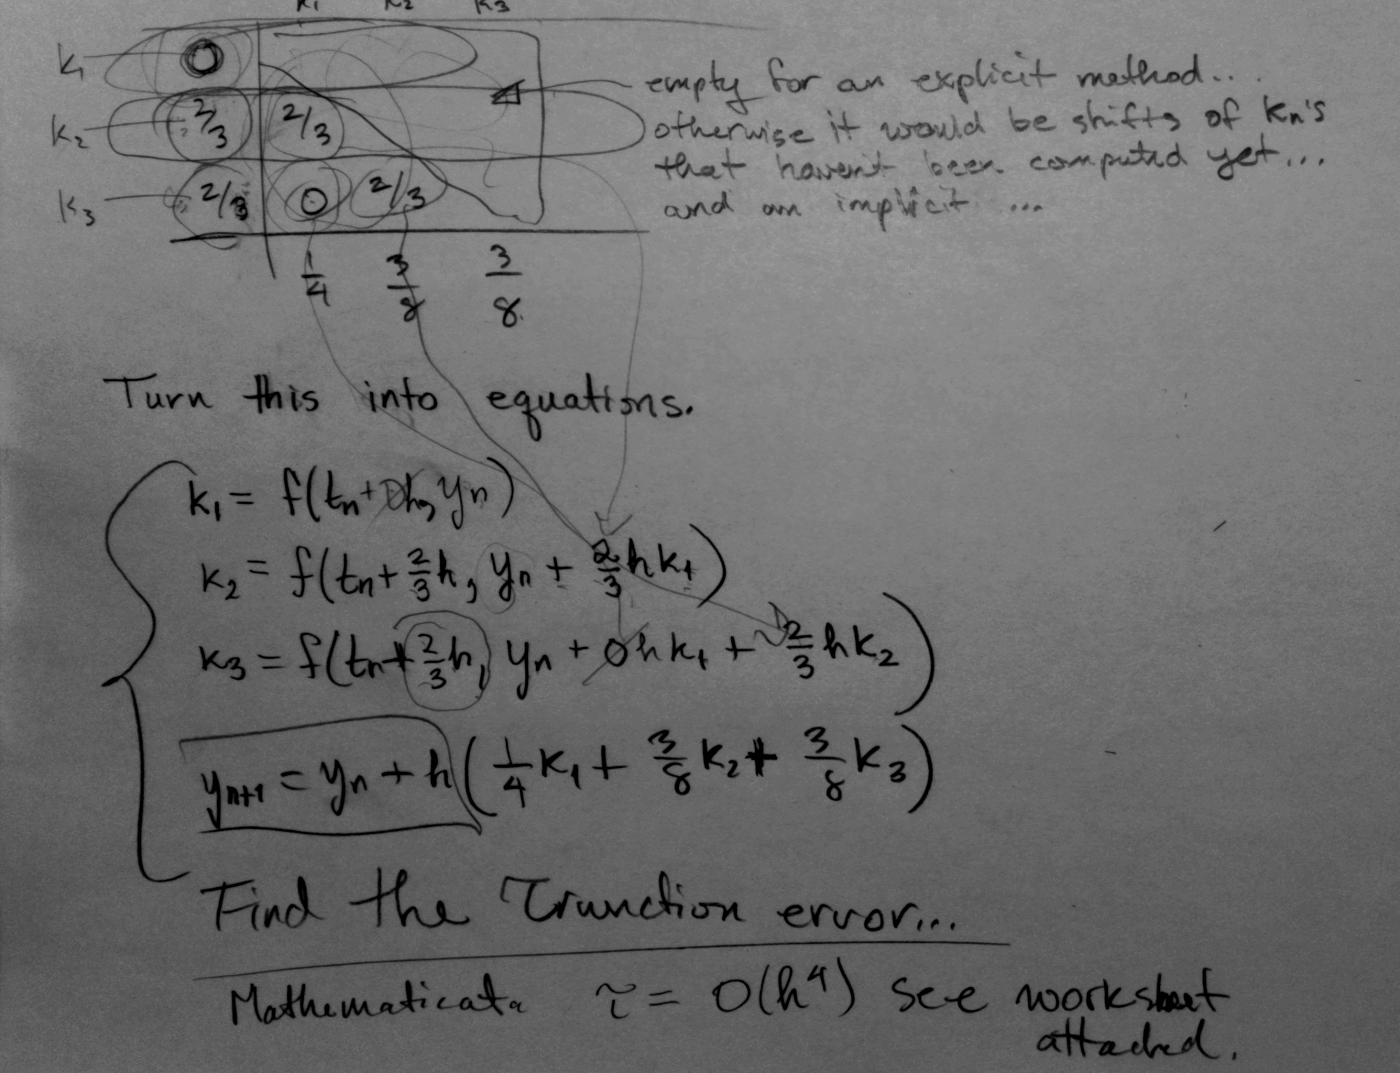 k₁ k₂ k₃
k₁ 0
k₂ 2/3 2/3
k₃ 2/3 0 2/3
1/4 3/8 3/8
empty for an explicit method...
otherwise it would be shifts of kn's
that haven't been computed yet...
and an implicit ...
Turn this into equations.
k₁ = f(tn + 0h, yn)
k₂ = f(tn + 2/3 h, yn + 2/3 h k₁)
k₃ = f(tn + 2/3 h, yn + 0 h k₁ + 2/3 h k₂)
yn+1 = yn + h (1/4 k₁ + 3/8 k₂ + 3/8 k₃)
Find the Trunction error...
τ = O(h⁴) see worksheet
attached.